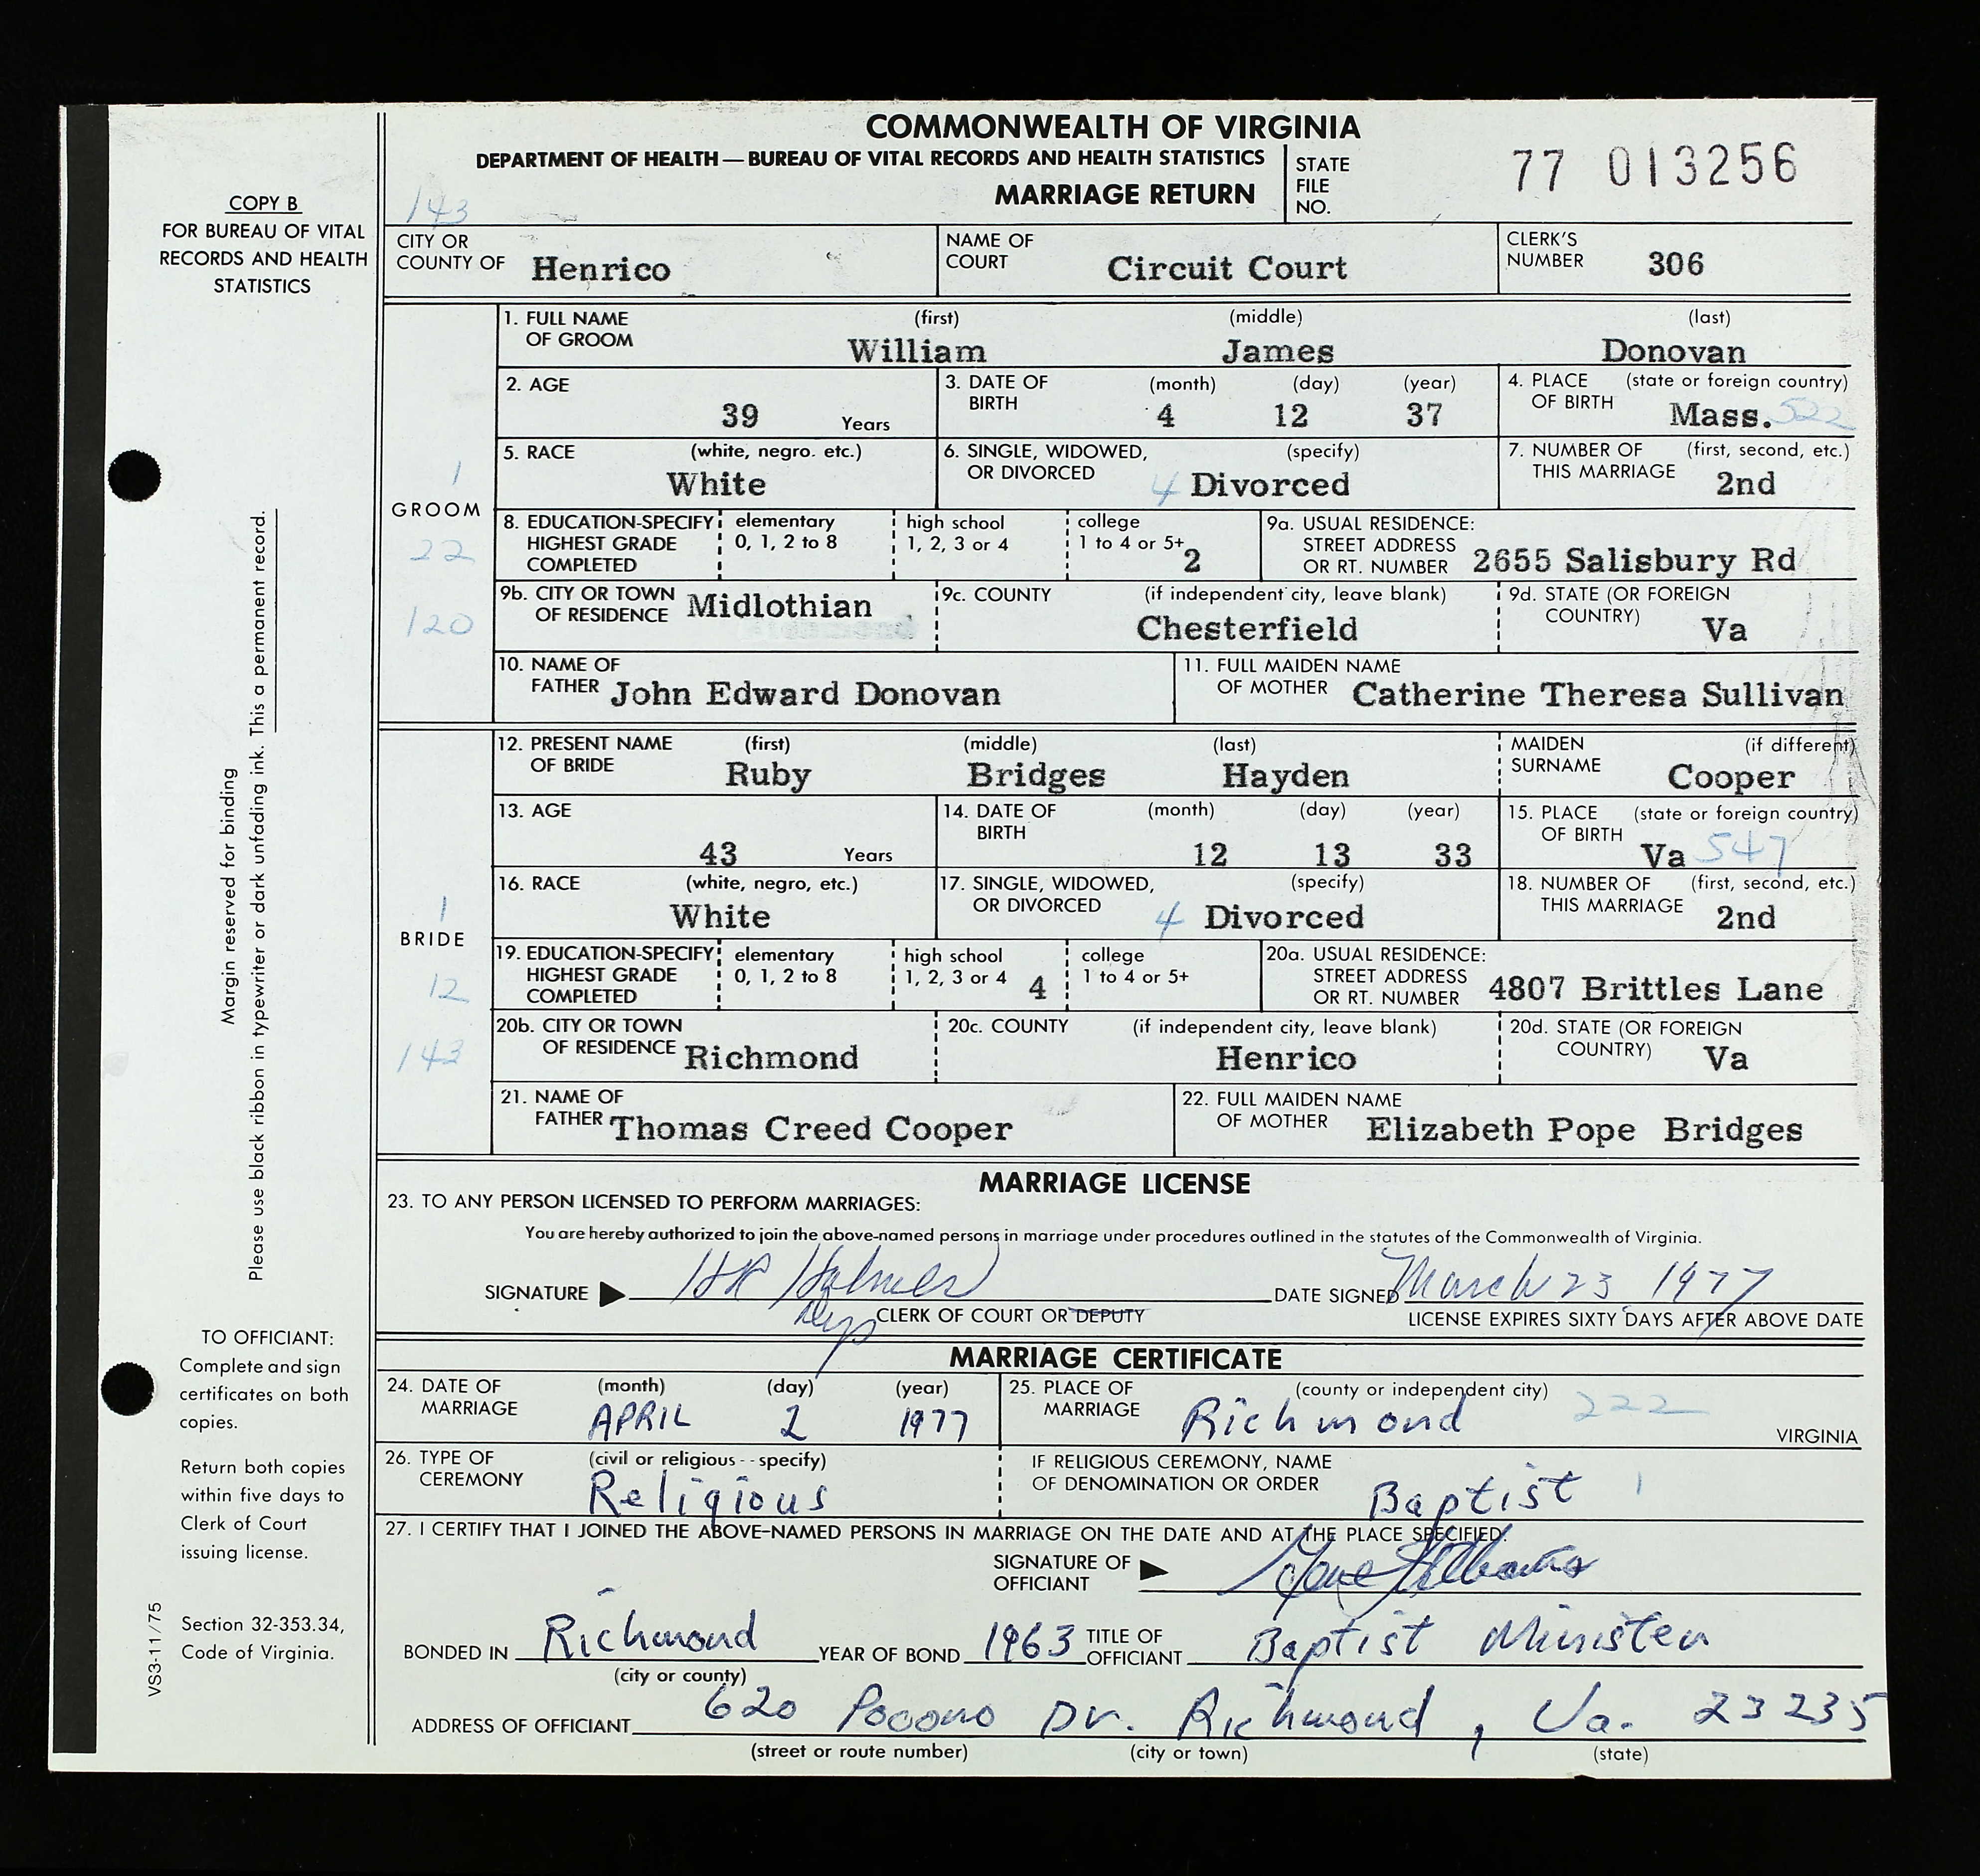 COMMONWEALTH OF VIRGINIA
DEPARTMENT OF HEALTH — BUREAU OF VITAL RECORDS AND HEALTH STATISTICS
MARRIAGE RETURN
STATE FILE NO. 77 013256
COPY B
FOR BUREAU OF VITAL
RECORDS AND HEALTH
STATISTICS
143
CITY OR COUNTY OF Henrico
NAME OF COURT Circuit Court
CLERK'S NUMBER 306
GROOM
1
22
120
1. FULL NAME OF GROOM (first) William (middle) James (last) Donovan
2. AGE 39 Years
3. DATE OF BIRTH (month) 4 (day) 12 (year) 37
4. PLACE OF BIRTH (state or foreign country) Mass. 522
5. RACE (white, negro. etc.) White
6. SINGLE, WIDOWED, OR DIVORCED (specify) 4 Divorced
7. NUMBER OF THIS MARRIAGE (first, second, etc.) 2nd
8. EDUCATION-SPECIFY HIGHEST GRADE COMPLETED elementary 0, 1, 2 to 8 high school 1, 2, 3 or 4 college 1 to 4 or 5+ 2
9a. USUAL RESIDENCE: STREET ADDRESS OR RT. NUMBER 2655 Salisbury Rd
9b. CITY OR TOWN OF RESIDENCE Midlothian
9c. COUNTY (if independent city, leave blank) Chesterfield
9d. STATE (OR FOREIGN COUNTRY) Va
10. NAME OF FATHER John Edward Donovan
11. FULL MAIDEN NAME OF MOTHER Catherine Theresa Sullivan
BRIDE
1
12
143
12. PRESENT NAME OF BRIDE (first) Ruby (middle) Bridges (last) Hayden
MAIDEN SURNAME (if different) Cooper
13. AGE 43 Years
14. DATE OF BIRTH (month) 12 (day) 13 (year) 33
15. PLACE OF BIRTH (state or foreign country) Va 547
16. RACE (white, negro, etc.) White
17. SINGLE, WIDOWED, OR DIVORCED (specify) 4 Divorced
18. NUMBER OF THIS MARRIAGE (first, second, etc.) 2nd
19. EDUCATION-SPECIFY HIGHEST GRADE COMPLETED elementary 0, 1, 2 to 8 high school 1, 2, 3 or 4 4 college 1 to 4 or 5+
20a. USUAL RESIDENCE: STREET ADDRESS OR RT. NUMBER 4807 Brittles Lane
20b. CITY OR TOWN OF RESIDENCE Richmond
20c. COUNTY (if independent city, leave blank) Henrico
20d. STATE (OR FOREIGN COUNTRY) Va
21. NAME OF FATHER Thomas Creed Cooper
22. FULL MAIDEN NAME OF MOTHER Elizabeth Pope Bridges
MARRIAGE LICENSE
23. TO ANY PERSON LICENSED TO PERFORM MARRIAGES:
You are hereby authorized to join the above-named persons in marriage under procedures outlined in the statutes of the Commonwealth of Virginia.
SIGNATURE HR Holmes DATE SIGNED March 23 1977
Dep CLERK OF COURT OR DEPUTY LICENSE EXPIRES SIXTY DAYS AFTER ABOVE DATE
MARRIAGE CERTIFICATE
24. DATE OF MARRIAGE (month) APRIL (day) 2 (year) 1977
25. PLACE OF MARRIAGE (county or independent city) Richmond 222 VIRGINIA
26. TYPE OF CEREMONY (civil or religious -- specify) Religious
IF RELIGIOUS CEREMONY, NAME OF DENOMINATION OR ORDER Baptist 1
27. I CERTIFY THAT I JOINED THE ABOVE-NAMED PERSONS IN MARRIAGE ON THE DATE AND AT THE PLACE SPECIFIED.
SIGNATURE OF OFFICIANT
BONDED IN Richmond YEAR OF BOND 1963 TITLE OF OFFICIANT Baptist Minister
(city or county)
ADDRESS OF OFFICIANT 620 Pocono Dr. Richmond, Va. 23235
(street or route number) (city or town) (state)
Margin reserved for binding
Please use black ribbon in typewriter or dark unfading ink. This a permanent record.
TO OFFICIANT:
Complete and sign
certificates on both
copies.
Return both copies
within five days to
Clerk of Court
issuing license.
Section 32-353.34,
Code of Virginia.
VS3-11/75